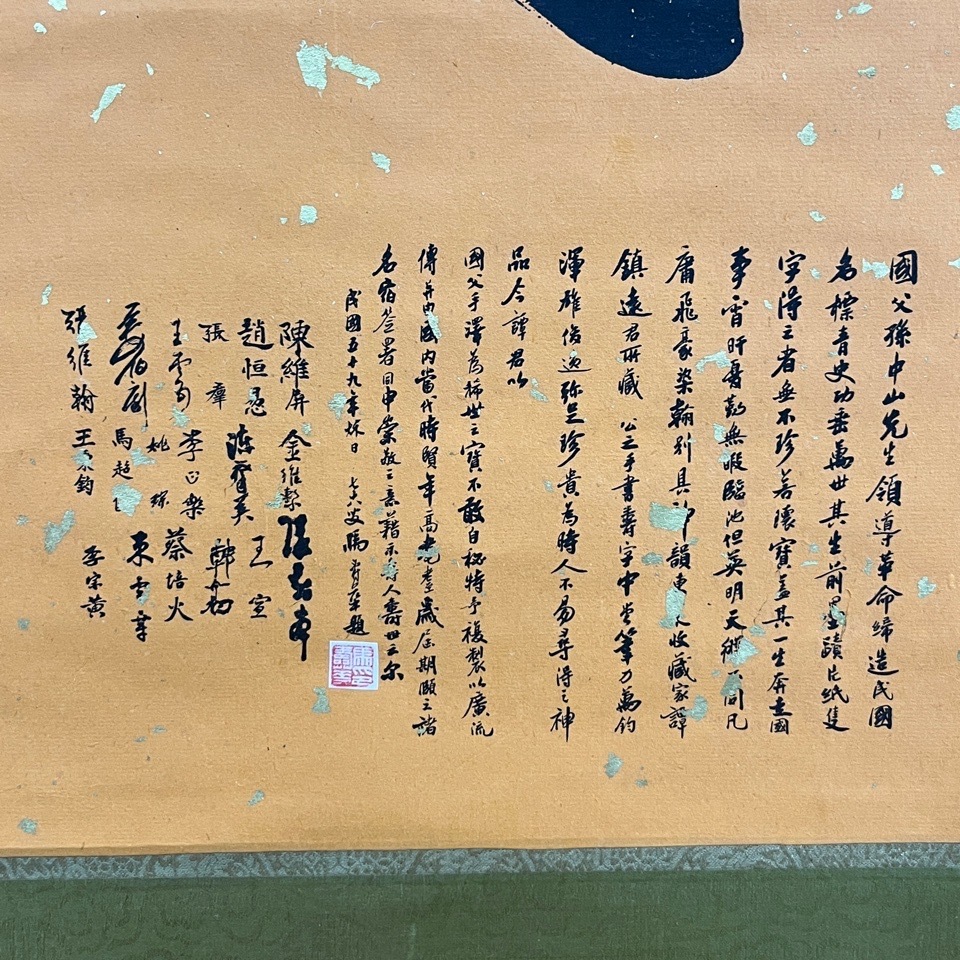 國父孫中山先生領導革命締造民國
名標青史功垂萬世其生前墨蹟片紙隻
字得之者無不珍若瓌寶蓋其一生奔走國
事宵旰憂勤無暇臨池但英明天縱不同凡
庸飛豪染翰別具神韻東 收藏家譚
鎮遠君所藏 公之手書壽字中堂筆力萬鈞
渾雄俊逸弥足珍貴為時人不易尋得之神
品今譚君以
國父手澤為稀世之寶不敢自秘特予複製以廣流
傳并由國內當代時賢年高耄耋歲屆期頤之諸
名宿簽署同申崇敬之意藉示壽人壽世云尔
民國五十九年 日 七六叟 題
陳維屏 金維繫
趙恒惕 王宣
張羣 韓
李 樂 蔡培火
姚琮
馬超 
張維翰 王 鈞 李宗黃